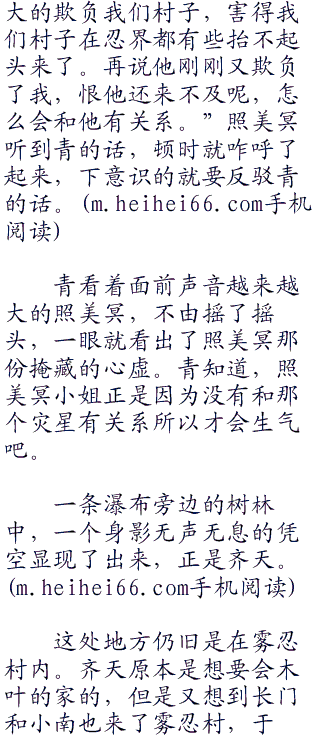 大的欺负我们村子，害得我
们村子在忍界都有些抬不起
头来了。再说他刚刚又欺负
了我，恨他还来不及呢，怎
么会和他有关系。”照美冥
听到青的话，顿时就咋呼了
起来，下意识的就要反驳青
的话。(m.heihei66.com手机
阅读)
青看着面前声音越来越
大的照美冥，不由摇了摇
头，一眼就看出了照美冥那
份掩藏的心虚。青知道，照
美冥小姐正是因为没有和那
个灾星有关系所以才会生气
吧。
一条瀑布旁边的树林
中，一个身影无声无息的凭
空显现了出来，正是齐天。
(m.heihei66.com手机阅读)
这处地方仍旧是在雾忍
村内。齐天原本是想要会木
叶的家的，但是又想到长门
和小南也来了雾忍村，于